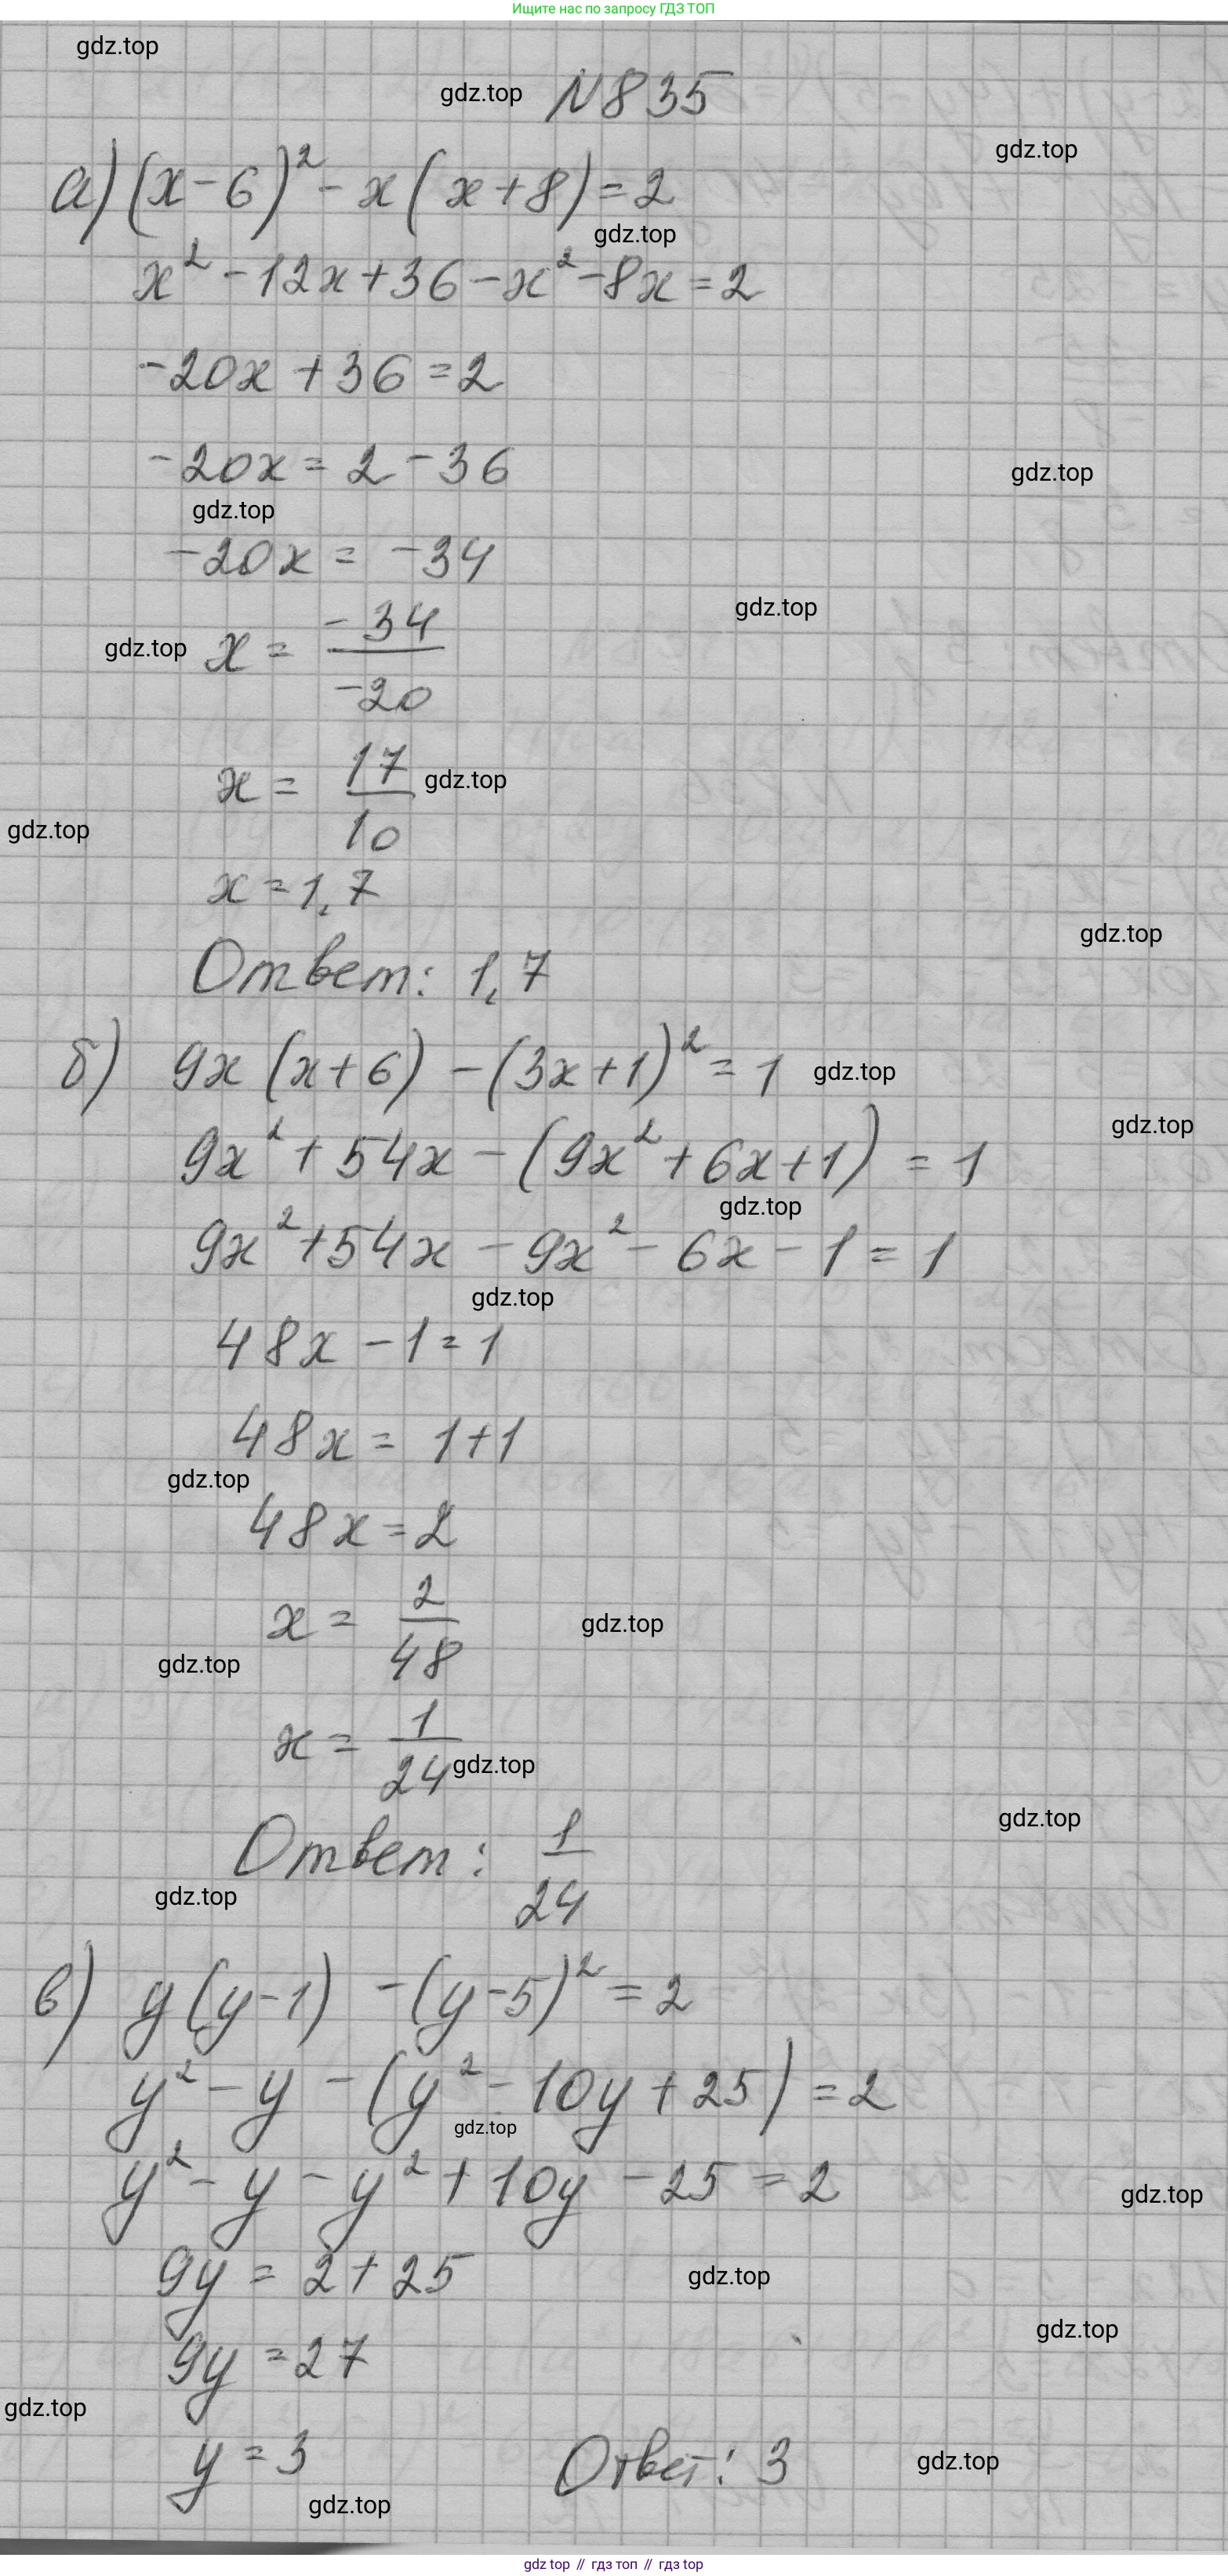 Ищите нас по запросу ГДЗ ТОП
gdz.top
gdz.top N835
gdz.top
а) (x-6)² - x(x+8)=2
gdz.top
x² -12x+36-x²-8x=2
-20x+36=2
-20x = 2-36
gdz.top
gdz.top
-20x = -34
gdz.top
gdz.top x = -34/-20
x = 17/10 gdz.top
gdz.top
x=1,7
gdz.top
Ответ: 1,7
б) 9x(x+6) -(3x+1)² = 1 gdz.top
gdz.top
9x² + 54x - (9x² + 6x+1) = 1
gdz.top
9x²+54x - 9x² - 6x - 1 = 1
gdz.top
48x -1 = 1
48x = 1+1
gdz.top
48x = 2
x = 2/48 gdz.top
gdz.top
x = 1/24 gdz.top
gdz.top
Ответ: 1/24
gdz.top
в) y(y-1) -(y-5)² = 2
y² - y - (y² - 10y + 25) = 2
gdz.top
y² - y - y² + 10y - 25 = 2
gdz.top
9y = 2+25 gdz.top
gdz.top
9y = 27
gdz.top
y = 3 Ответ: 3 gdz.top
gdz.top
gdz top // гдз топ // гдз top